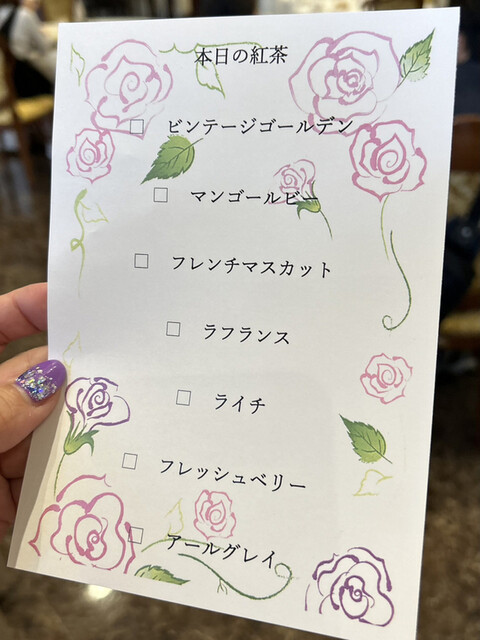 本日の紅茶
□ ビンテージゴールデン
□ マンゴールビー
□ フレンチマスカット
□ ラフランス
□ ライチ
□ フレッシュベリー
□ アールグレイ